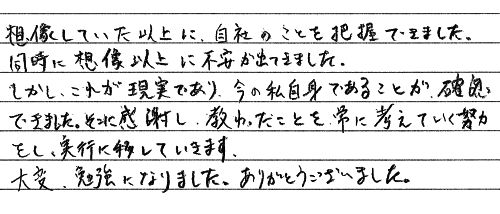 想像していた以上に、自社のことを把握できました。
同時に想像以上に不安が出てきました。
しかし、これが現実であり、今の私自身であることが、確認
できました。それに感謝し、教わったことを、常に考えていく努力
をし、実行に移していきます。
大変、勉強になりました。ありがとうございました。